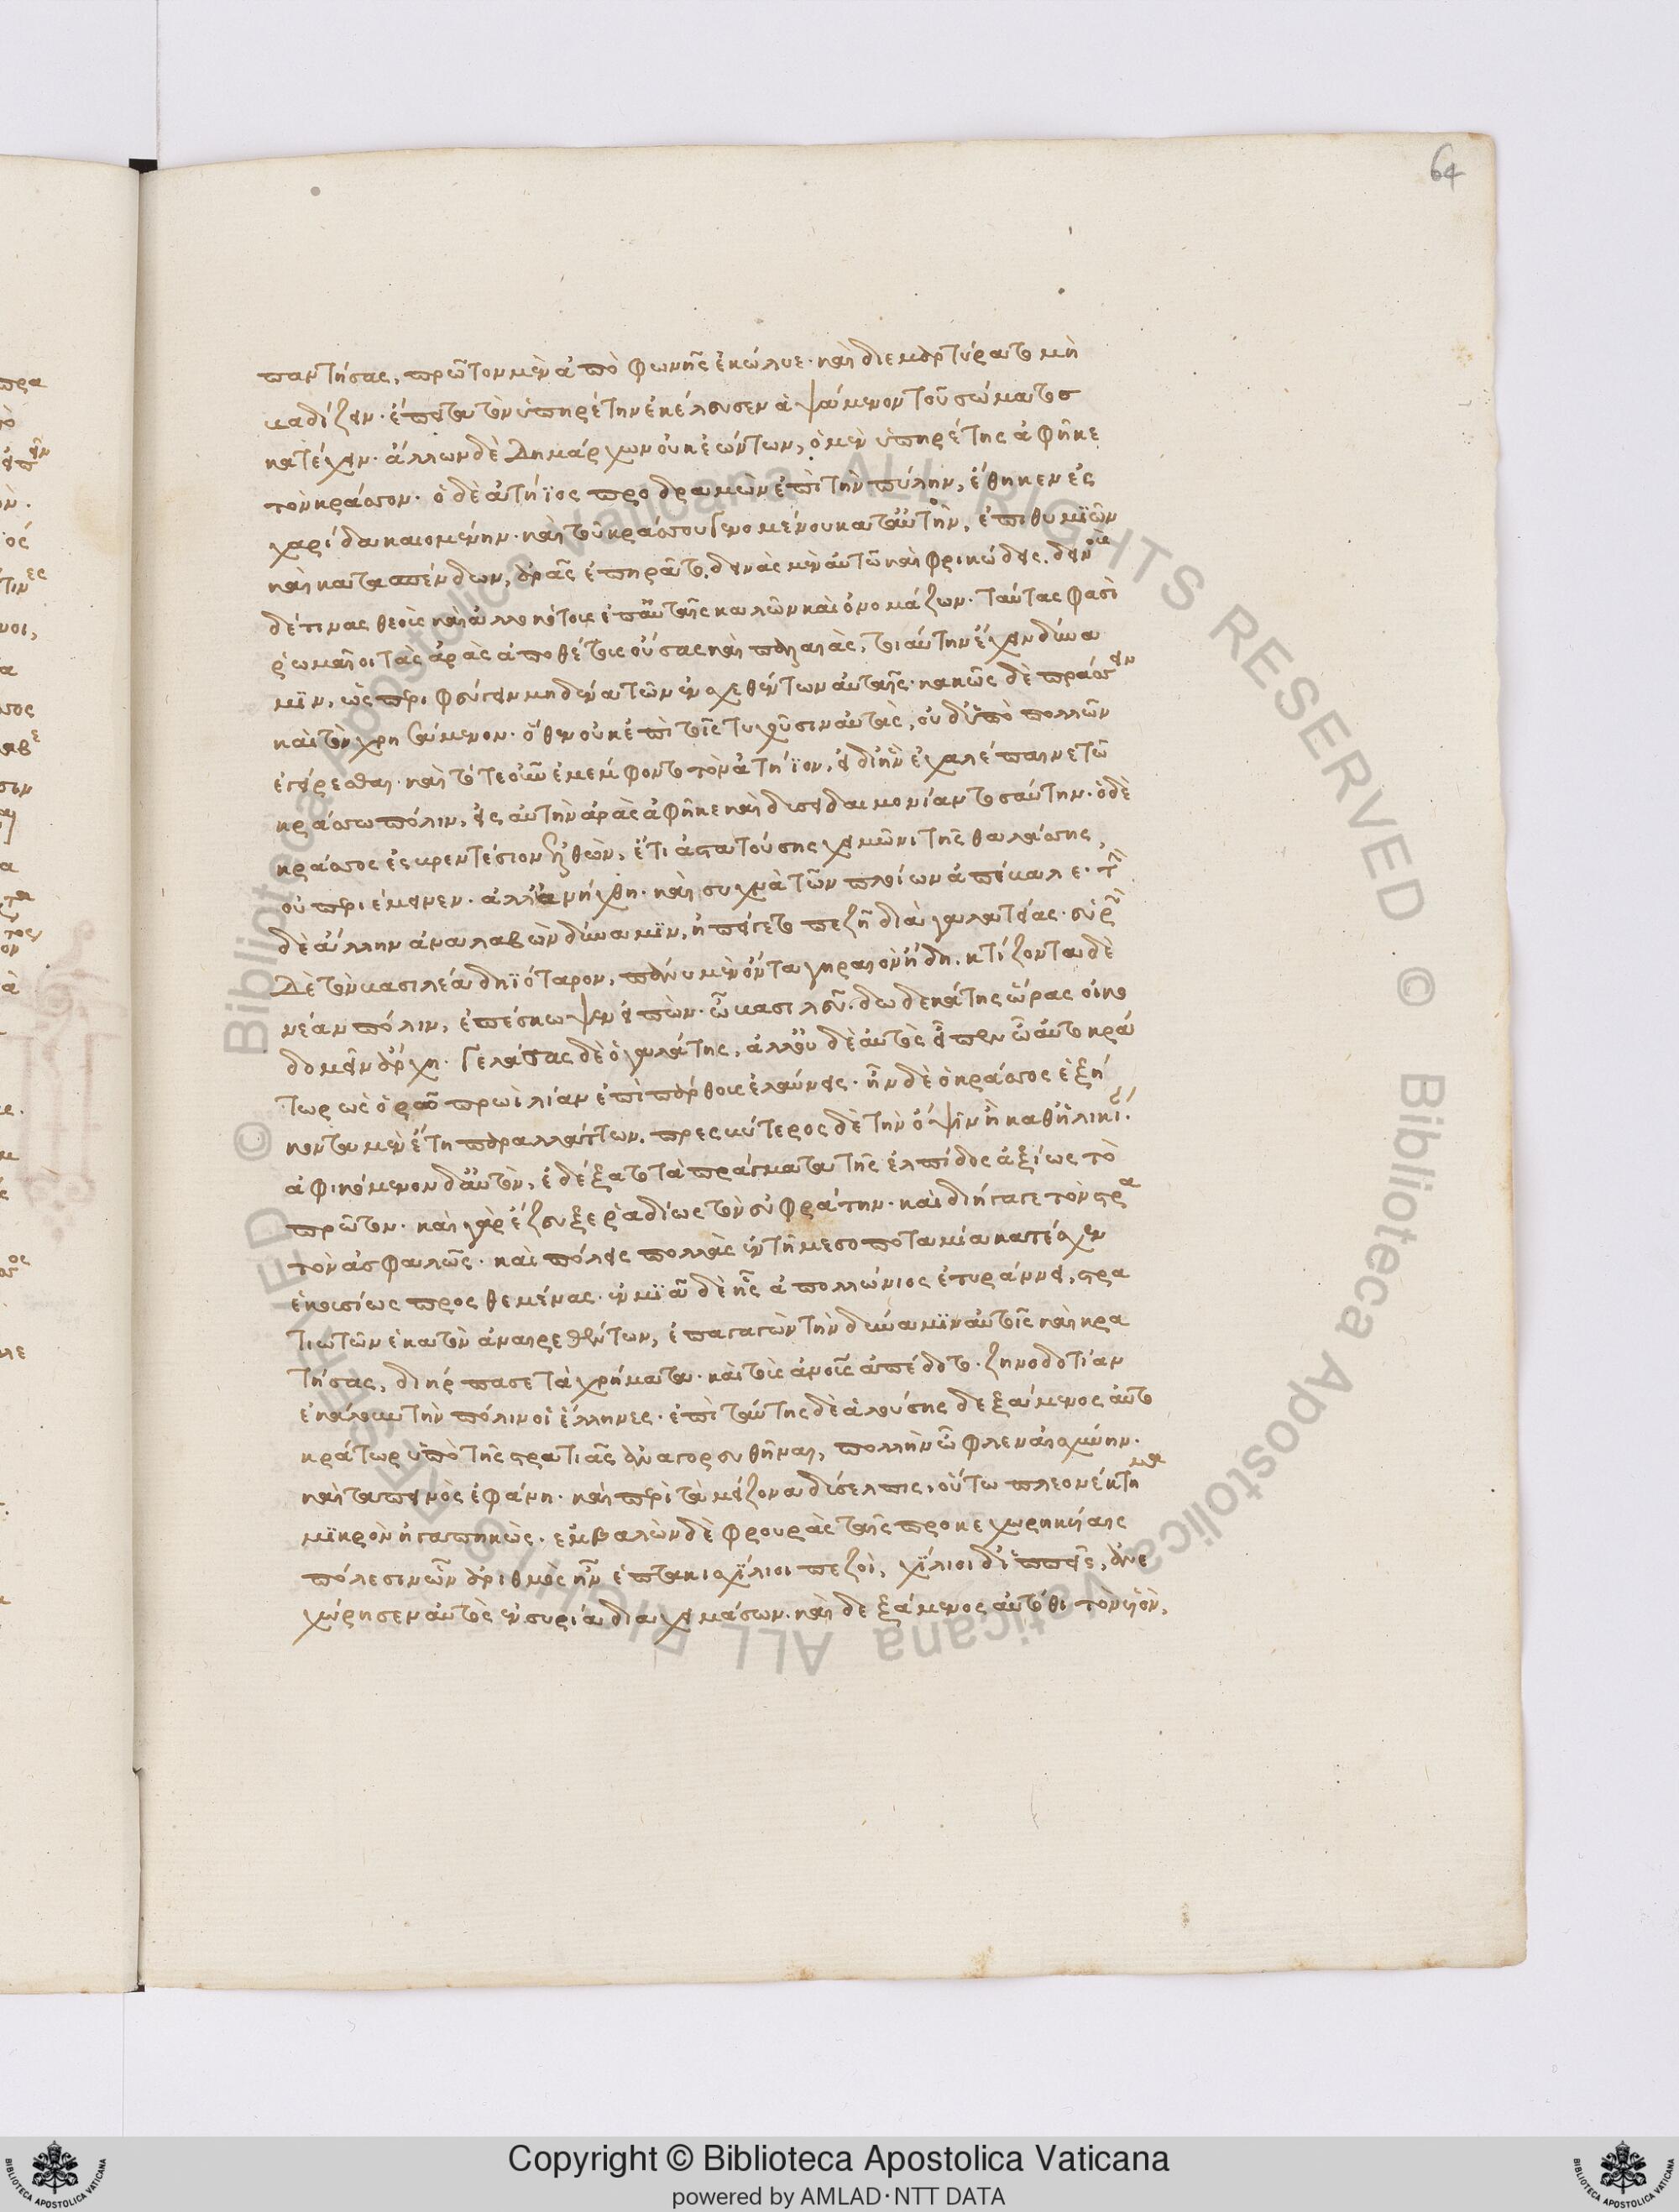 64
παντήσας, πρῶτον μὲν ἀπὸ φωνῆς ἐκώλυε· καὶ διεμαρτύρατο μὴ
βαδίζειν· ἔπειτα τὸν ὑπηρέτην ἐκέλευσεν ἁψάμενον τοῦ σώματος
κατέχειν· ἄλλων δὲ δημάρχων οὐκ ἐώντων, ὁ μὲν ὑπηρέτης ἀφῆκε
τὸν κράσσον· ὁ δὲ ἀτήϊος προδραμὼν ἐπὶ τὴν πύλην, ἔθηκεν ἐσ
χαρίδα καιομένην· καὶ τοῦ κράσσου γενομένου κατ' αὐτὴν, ἐπιθυμιῶν
καὶ κατασπένδων, ἀρὰς ἐπηρᾶτο δεινὰς μὲν αὐτῶ καὶ φρικώδεις. δεινοὺς
δέ τινας θεοὺς καὶ ἀλλοκότους ἐπ' αὐταῖς καλῶν καὶ ὀνομάζων. ταύτας φασὶ
ῥωμαῖοι τὰς ἀρὰς ἀποθέτους οὔσας καὶ παλαιὰς, τοιαύτην ἔχειν δύνα
μιν, ὡς περιφεύγειν μηδένα τῶν ἐνσχεθέντων αὐταῖς· κακῶς δὲ πράσσειν
καὶ τὸν χρησάμενον· ὅθεν οὐκ ἐπὶ τοῖς τυχοῦσιν αὐτὰς, οὐδ' ὑπὸ πολλῶν
ἐγείρεσθαι· καὶ τότε οὖν ἐμέμφοντο τὸν ἀτήϊον, εἰ δι' ἣν ἐχαλέπαινε τῶ
κράσσω πόλιν, εἰς αὐτὴν ἀρὰς ἀφῆκε καὶ δεισιδαιμονίαν τοσαύτην. ὁ δὲ
κράσσος εἰς βρεντέσιον ἦλθεν, ἔτι ἀστατούσης χειμῶνι τῆς θαλάσσης,
οὐ περιέμεινεν· ἀλλ' ἀνήχθη· καὶ συχνὰ τῶν πλοίων ἀπέβαλε· τὴν
δὲ ἄλλην ἀναλαβὼν δύναμιν, ἠπείγετο πεζῆ διὰ γαλατείας· εὑρὼν
δὲ τὸν βασιλέα δηϊόταρον, πάνυ μὲν ὄντα γηραιὸν ἤδη. κτίζοντα δὲ
νέαν πόλιν, ἐπέσκωψεν εἰπὼν· ὦ βασιλεῦ. δωδεκάτης ὥρας οἰκο
δομεῖν ἄρχη· γελάσας δὲ ὁ γαλάτης, ἀλλ' οὐδὲ αὐτὸς εἶπεν ὦ αὐτοκρά
τωρ ὡς ὁρῶ πρωῒ λίαν ἐπὶ πάρθους ἐλαύνεις· ἦν δὲ ὁ κράσσος ἑξή
κοντα μὲν ἔτη παραλλάττων. πρεσβύτερος δὲ τὴν ὄψιν ἢ καθ' ἡλικίαν·
ἀφικόμενον δ' αὐτὸν, ἐδέξατο τὰ πράγματα τῆς ἐλπίδος ἀξίως τὸ
πρῶτον· καὶ γὰρ ἔζευξε ῥαδίως τὸν εὐφράτην· καὶ διήγαγε τὸν στρα
τὸν ἀσφαλῶς· καὶ πόλεις πολλὰς ἐν τῆ μεσοποταμία κατέσχεν
ἑκουσίως προσθεμένας· ἐν μιᾶ δὲ ἧς ἀπολλώνιος ἐτυράννει, στρα
τιωτῶν ἑκατὸν ἀναιρεθέντων, ἐπαγαγὼν τὴν δύναμιν αὐτοῖς καὶ κρα
τήσας, διήρπασε τὰ χρήματα· καὶ τοὺς ἀνους ἀπέδοτο· ζηνοδοτίαν
ἐκάλουν τὴν πόλιν οἱ ἕλληνες· ἐπὶ ταύτης δὲ ἁλούσης δεξάμενος αὐτο
κράτωρ ὑπὸ τῆς στρατιᾶς ἀναγορευθῆναι, πολλὴν ὦφλεν αἰσχύνην·
καὶ ταπεινὸς ἐφάνη· καὶ περὶ τὰ μείζονα δύσελπις, οὕτω πλεονέκτημα
μικρὸν ἠγαπηκὼς· ἐμβαλὼν δὲ φρουρὰς ταῖς προκεχωρηκυίαις
πόλεσιν ὧν ἀριθμὸς ἦν ἑπτακισχίλιοι πεζοὶ, χίλιοι δ' ἱππεῖς, ἀνε
χώρησεν αὐτὸς ἐν συρία διαχειμάσων· καὶ δεξάμενος αὐτόθι τὸν υἱὸν,
Copyright © Biblioteca Apostolica Vaticana
powered by AMLAD·NTT DATA